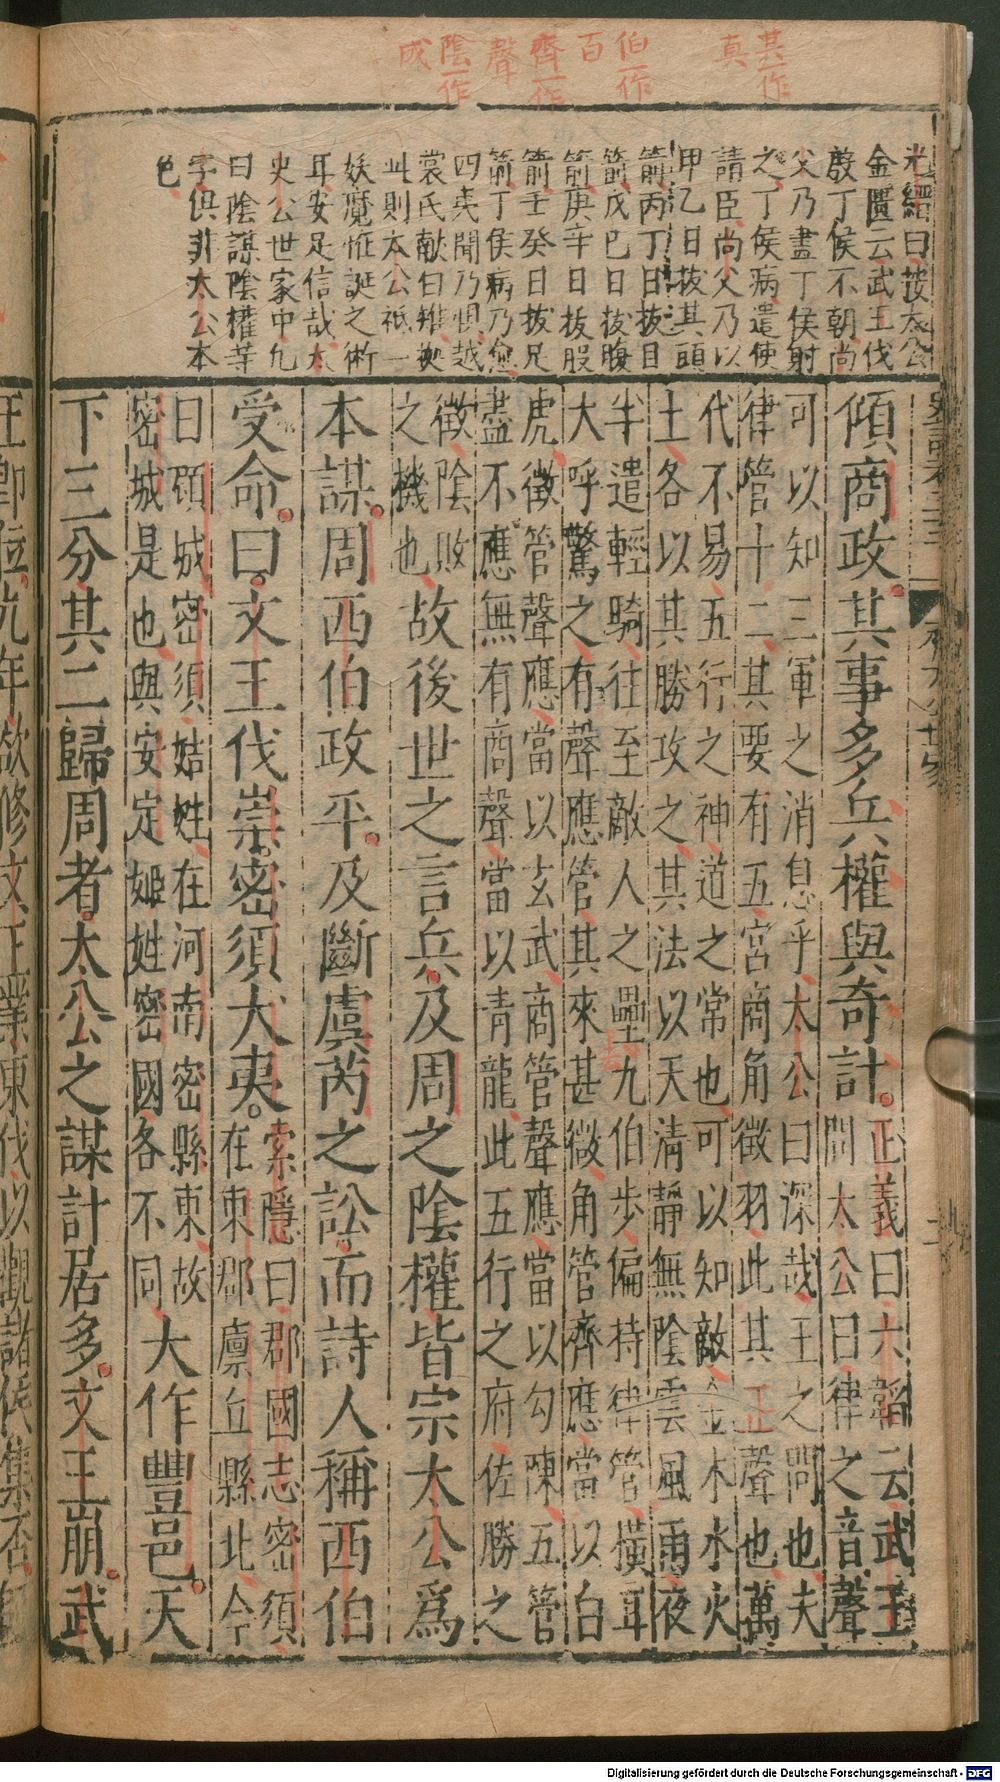 甚一作
真
伯一作
百
齊一作
聲
陰一作
成
光縉曰按太公
金匱云武王伐
殷丁侯不朝尚
父乃畫丁侯射
之丁侯病遣使
請臣尚父乃以
甲乙日拔其頭
箭丙丁日拔目
箭戊巳日拔腹
箭庚辛日拔股
箭壬癸日拔足
箭丁侯病乃愈
四夷聞乃惧越
裳氏献白雉據
此則太公祗一
妖魔恠誕之術
耳安足信哉太
史公世家中凢
曰陰謀陰權等
字俱非太公本
色
傾商政其事多兵權與奇計正義曰六韜云武王
問太公曰律之音聲
可以知三軍之消息乎太公曰深哉王之問也夫
律管十二其要有五宮商角徵羽此其正聲也萬
代不易五行之神道之常也可以知敵金木水火
土各以其勝攻之其法以天清靜無陰雲風雨夜
半遣輕騎往至敵人之壘九伯步偏持律管橫耳
大呼驚之有聲應管其來甚微角管齊應當以白
虎徵管聲應當以玄武商管聲應當以勾陳五管
盡不應無有商聲當以青龍此五行之府佐勝之
徵陰敗
之機也故後世之言兵及周之陰權皆宗太公爲
本謀周西伯政平及斷虞芮之訟而詩人稱西伯
受命曰文王伐崇密須犬夷索隱曰郡國志密須
在東郡廩丘縣北今
曰頓城密須姞姓在河南密縣東故
密城是也與安定姬姓密國各不同大作豐邑天
下三分其二歸周者太公之謀計居多文王崩武
王即位九年欲修文王業東伐以觀諸侯集否
Digitalisierung gefördert durch die Deutsche Forschungsgemeinschaft - DFG